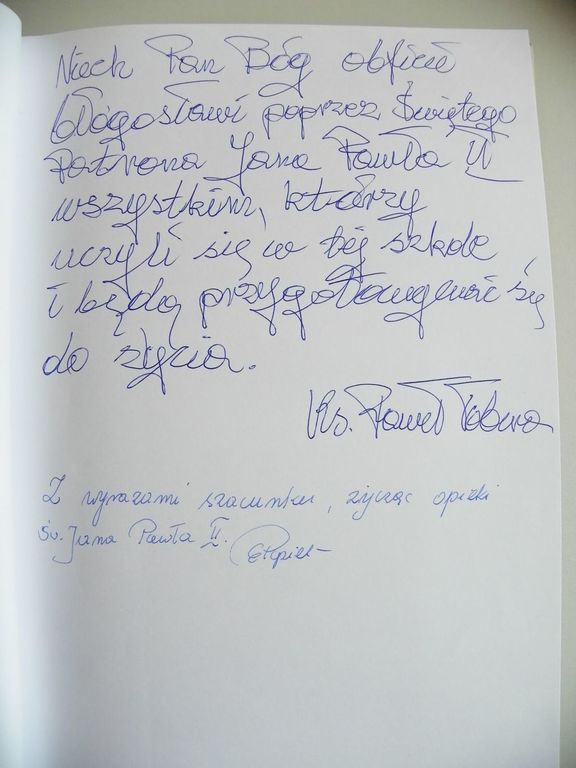 Niech Pan Bóg obficie
błogosławi poprzez Świętego
Patrona Jana Pawła II
wszystkim, którzy
uczyli się w tej szkole
i będą przygotowywać się
do życia.
Ks. Paweł Tobera
Z wyrazami szacunku, życząc opieki
Św. Jana Pawła II.